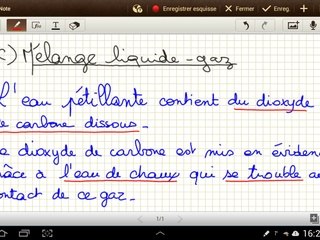 Note
Enregistrer esquisse
Fermer
Enreg.
c) Mélange liquide-gaz
L'eau pétillante contient du dioxyde
de carbone dissous.
Le dioxyde de carbone est mis en éviden
grâce à l'eau de chaux qui se trouble au
contact de ce gaz.
1/1
16:2